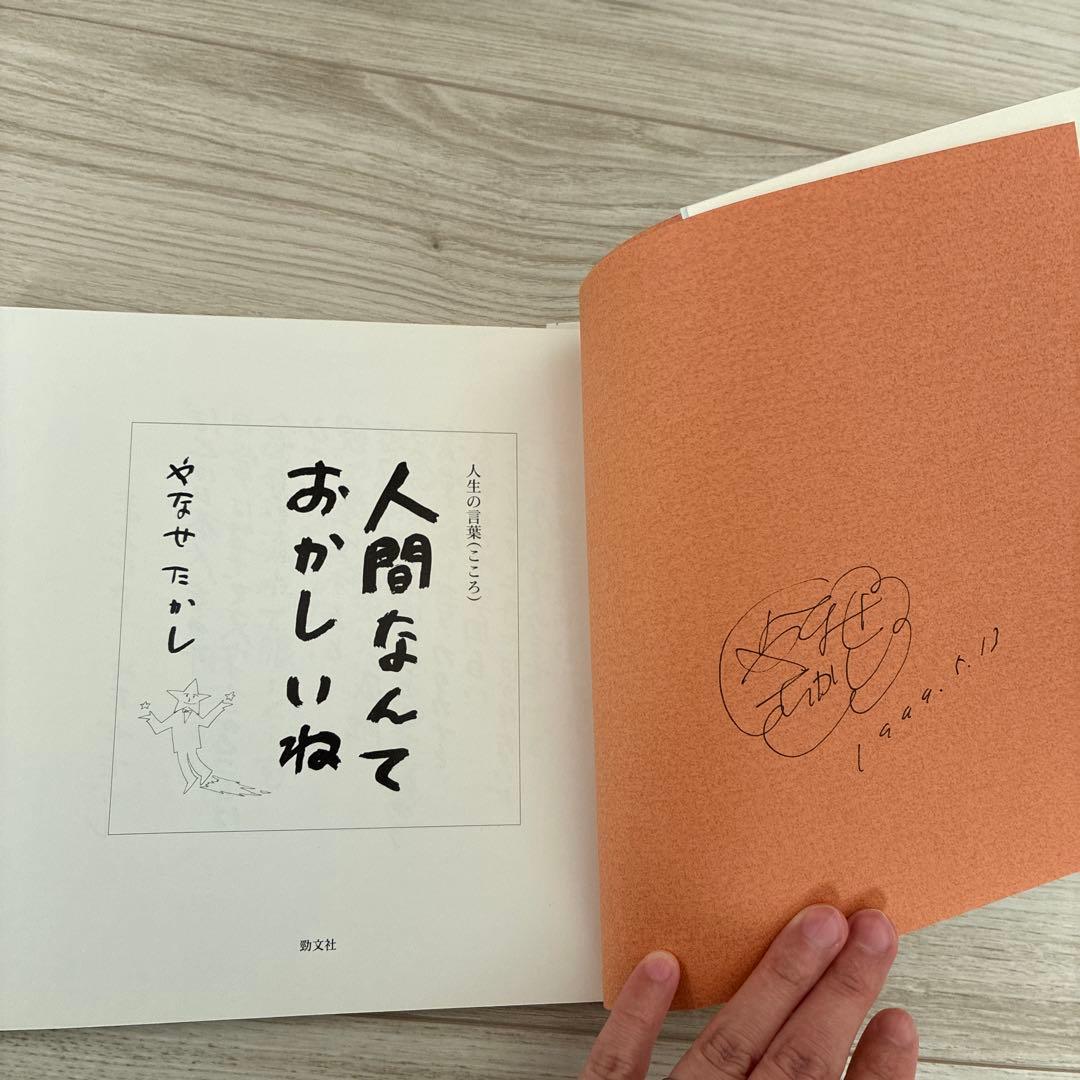 人生の言葉(こころ)
人間なんて
おかしいね
やなせたかし
勁文社
やなせ
たかし
1999.5.13